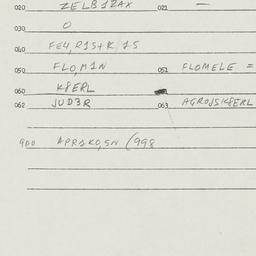 020 ZELB1ZAX 021 —
030 0
040 FE4,R1S+K 15
050 FLO,M1N 051 FLOMELE =
060 K8ERL
062 JUD3R 063 AGROJSK8ERL
900 APR1KO,SN (998